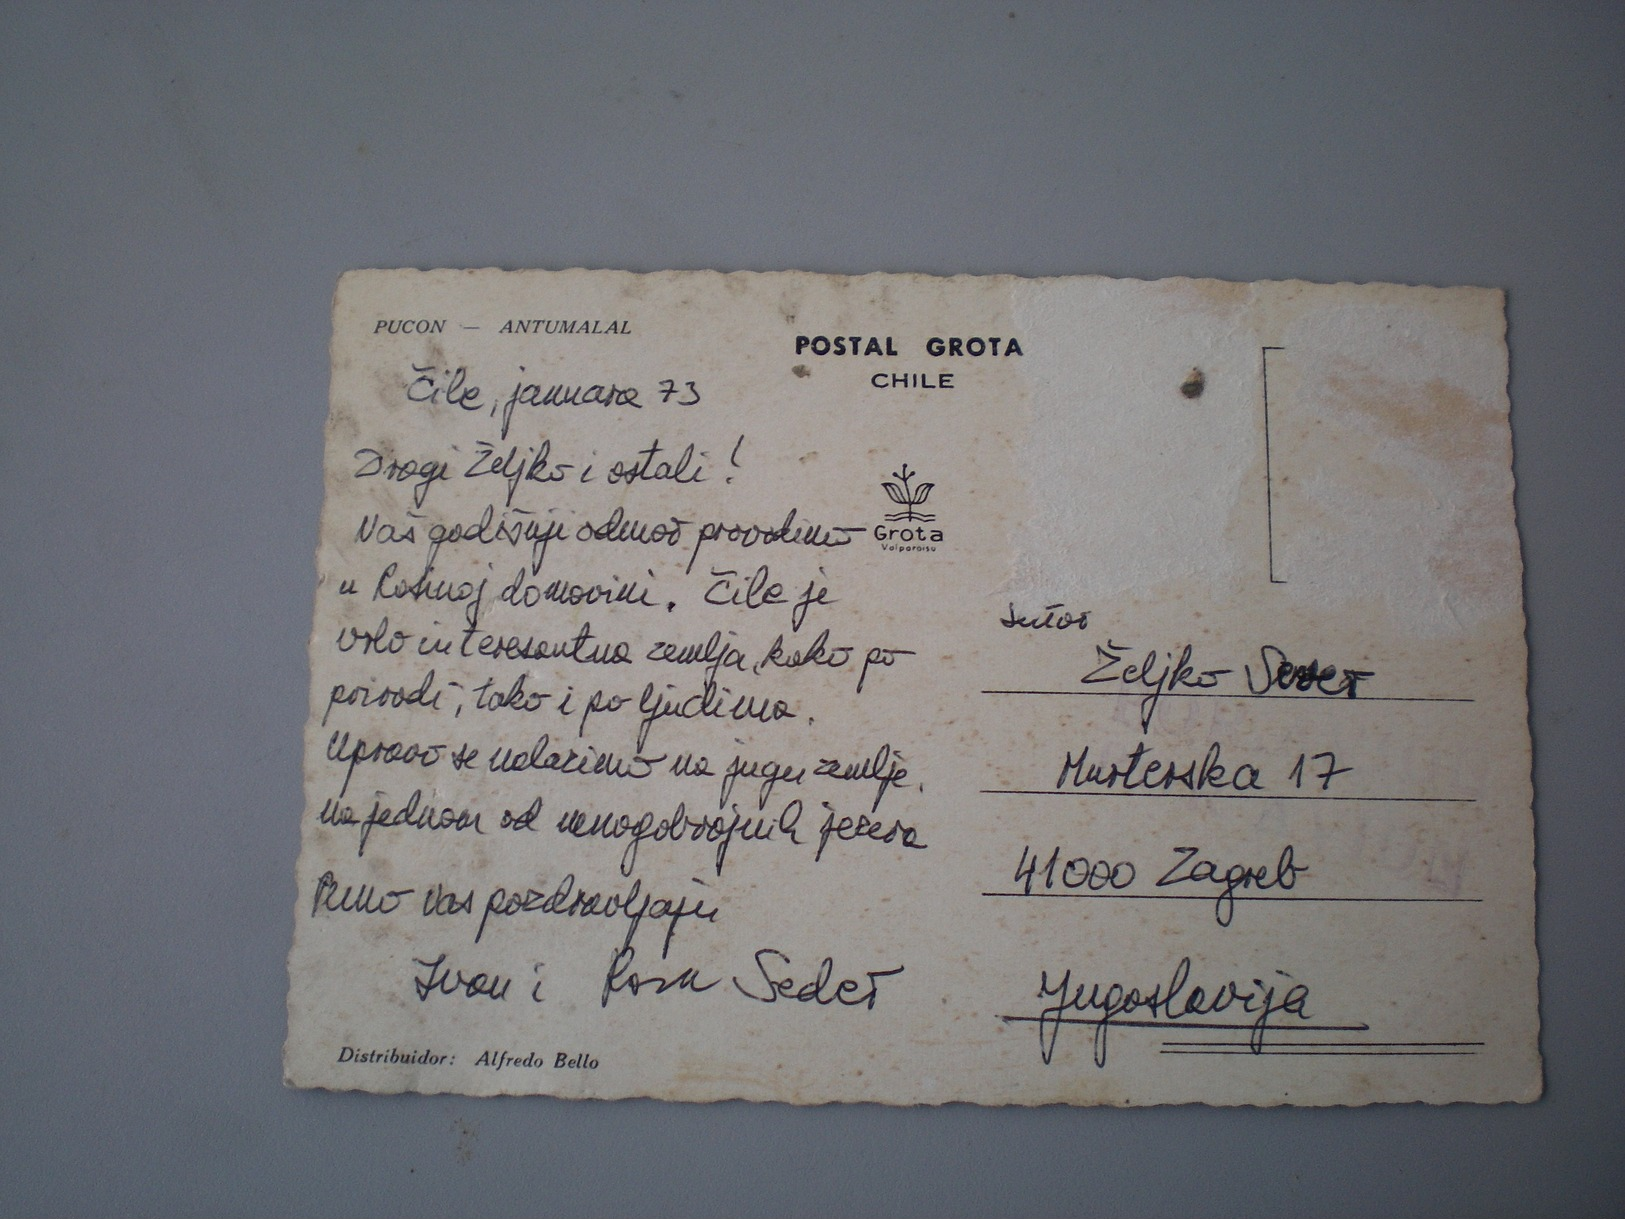 PUCON — ANTUMALAL
POSTAL GROTA
CHILE
Čile, januara 73
Dragi Željko i ostali!
Naš godišnji odmor provodimo
u Rosinoj domovini. Čile je
vrlo interesantna zemlja, kako po
prirodi, tako i po ljudima.
Upravo se nalazimo na jugu zemlje,
na jednom od mnogobrojnih jezera
Puno Vas pozdravljaju
Ivan i Rosa Sedet
Distribuidor: Alfredo Bello
Grota
Valparaiso
Señor
Željko
Murterska 17
41000 Zagreb
Jugoslavija